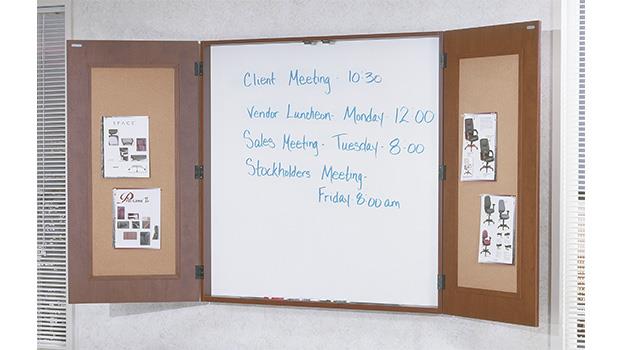 Client Meeting - 10:30
Vendor Luncheon - Monday 12:00
Sales Meeting - Tuesday - 8:00
Stockholders Meeting -
Friday 8:00 am
SPACE